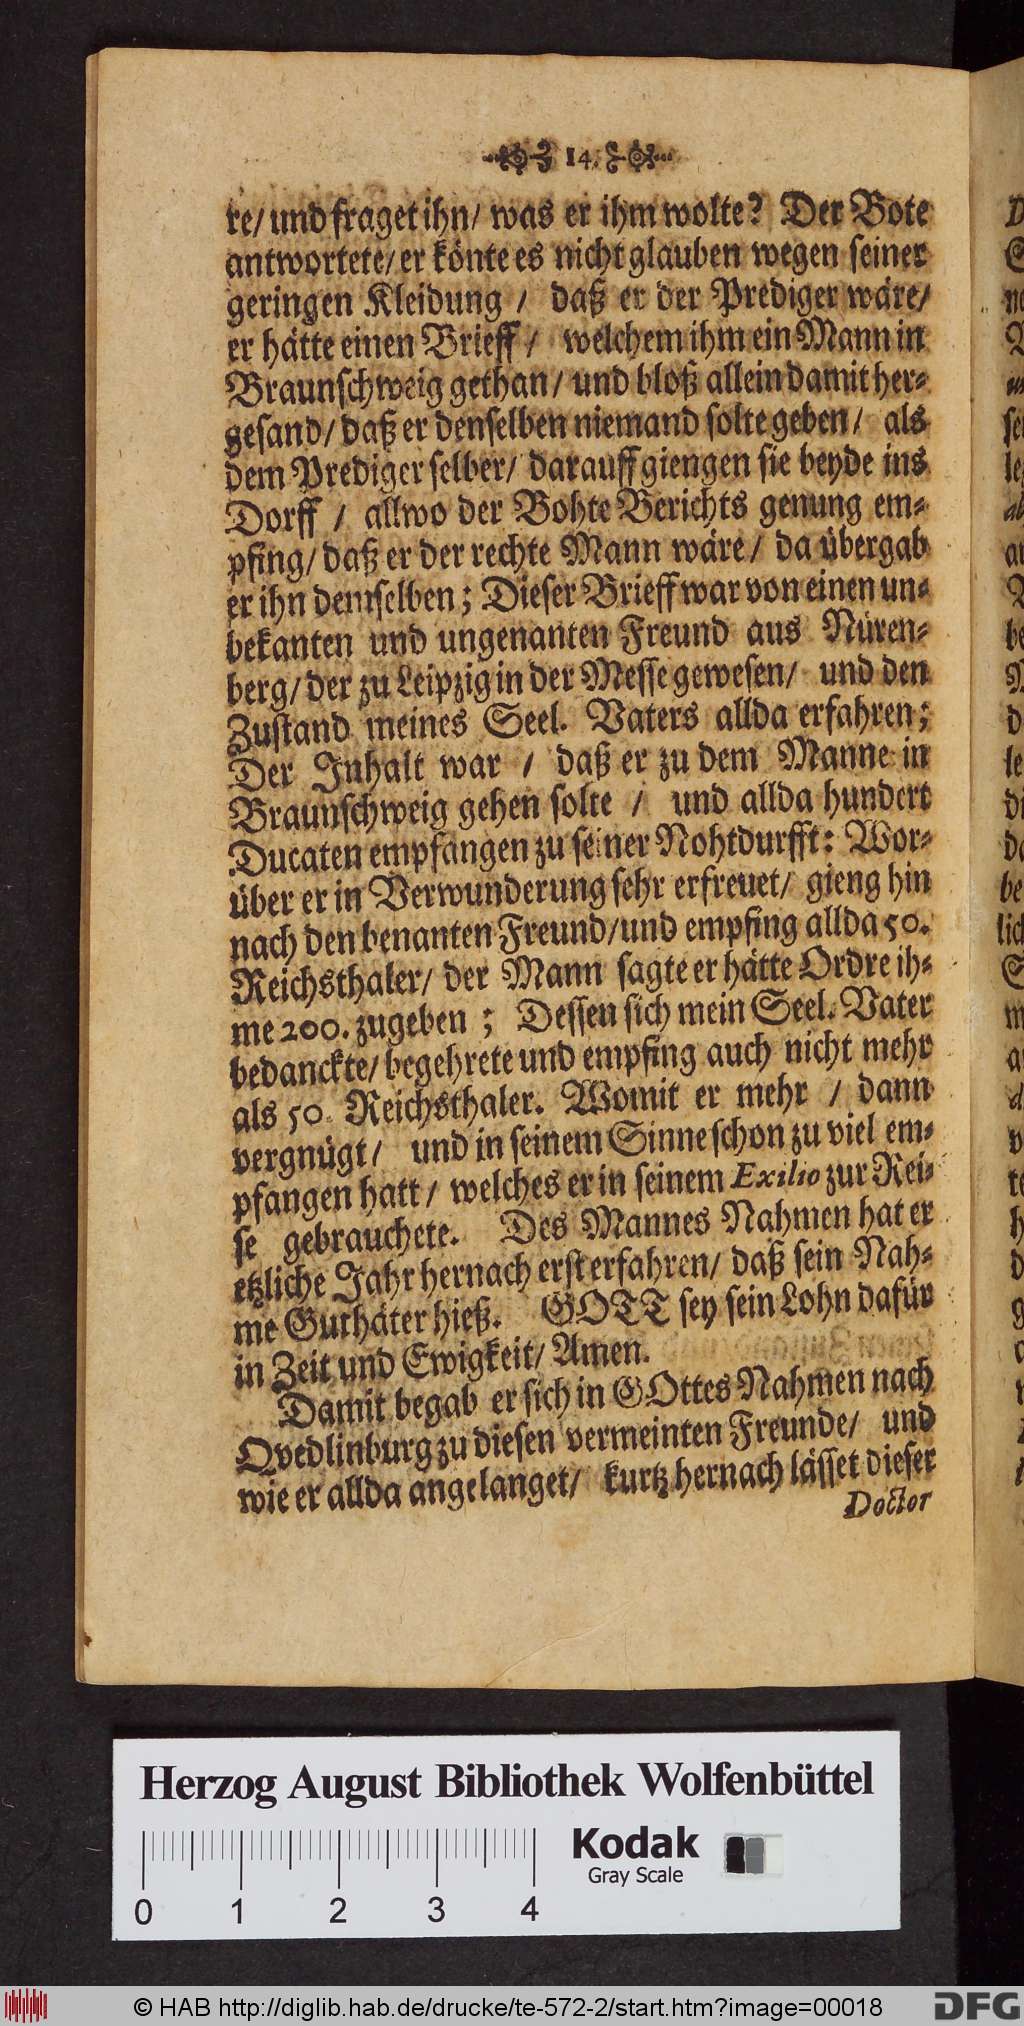 14.
re/ und fraget ihn/ was er ihm wolte? Der Bote
antwortete/ er könte es nicht glauben wegen seiner
geringen Kleidung / daß er der Prediger wäre/
er hätte einen Brieff / welchem ihm ein Mann in
Braunschweig gethan/ und bloß allein damit her-
gesand/ daß er denselben niemand solte geben/ als
dem Prediger selber/ darauff giengen sie beyde ins
Dorff / allwo der Bohte Berichts genung em-
pfing/ daß er der rechte Mann wäre/ da übergab
er ihn demselben; Dieser Brieff war von einen un-
bekanten und ungenanten Freund aus Nüren-
berg/ der zu Leipzig in der Messe gewesen/ und den
Zustand meines Seel. Vaters allda erfahren;
Der Inhalt war / daß er zu dem Manne in
Braunschweig gehen solte / und allda hundert
Ducaten empfangen zu seiner Nohtdurfft: Wor-
über er in Verwunderung sehr erfreuet/ gieng hin
nach den benanten Freund/ und empfing allda 50.
Reichsthaler/ der Mann sagte er hätte Ordre ih-
me 200. zugeben ; Dessen sich mein Seel. Vater
bedanckte/ begehrete und empfing auch nicht mehr
als 50. Reichsthaler. Womit er mehr / dann
vergnügt/ und in seinem Sinne schon zu viel em-
pfangen hatt/ welches er in seinem Exilio zur Rei-
se gebrauchete. Des Mannes Nahmen hat er
etzliche Jahr hernach erst erfahren/ daß sein Nah-
me Guthäter hieß. GOTT sey sein Lohn dafür
in Zeit und Ewigkeit/ Amen.
Damit begab er sich in GOttes Nahmen nach
Qvedlinburg zu diesen vermeinten Freunde/ und
wie er allda angelanget/ kurtz hernach lässet dieser
Doctor
Herzog August Bibliothek Wolfenbüttel
Kodak
Gray Scale
0 1 2 3 4
© HAB http://diglib.hab.de/drucke/te-572-2/start.htm?image=00018
DFG